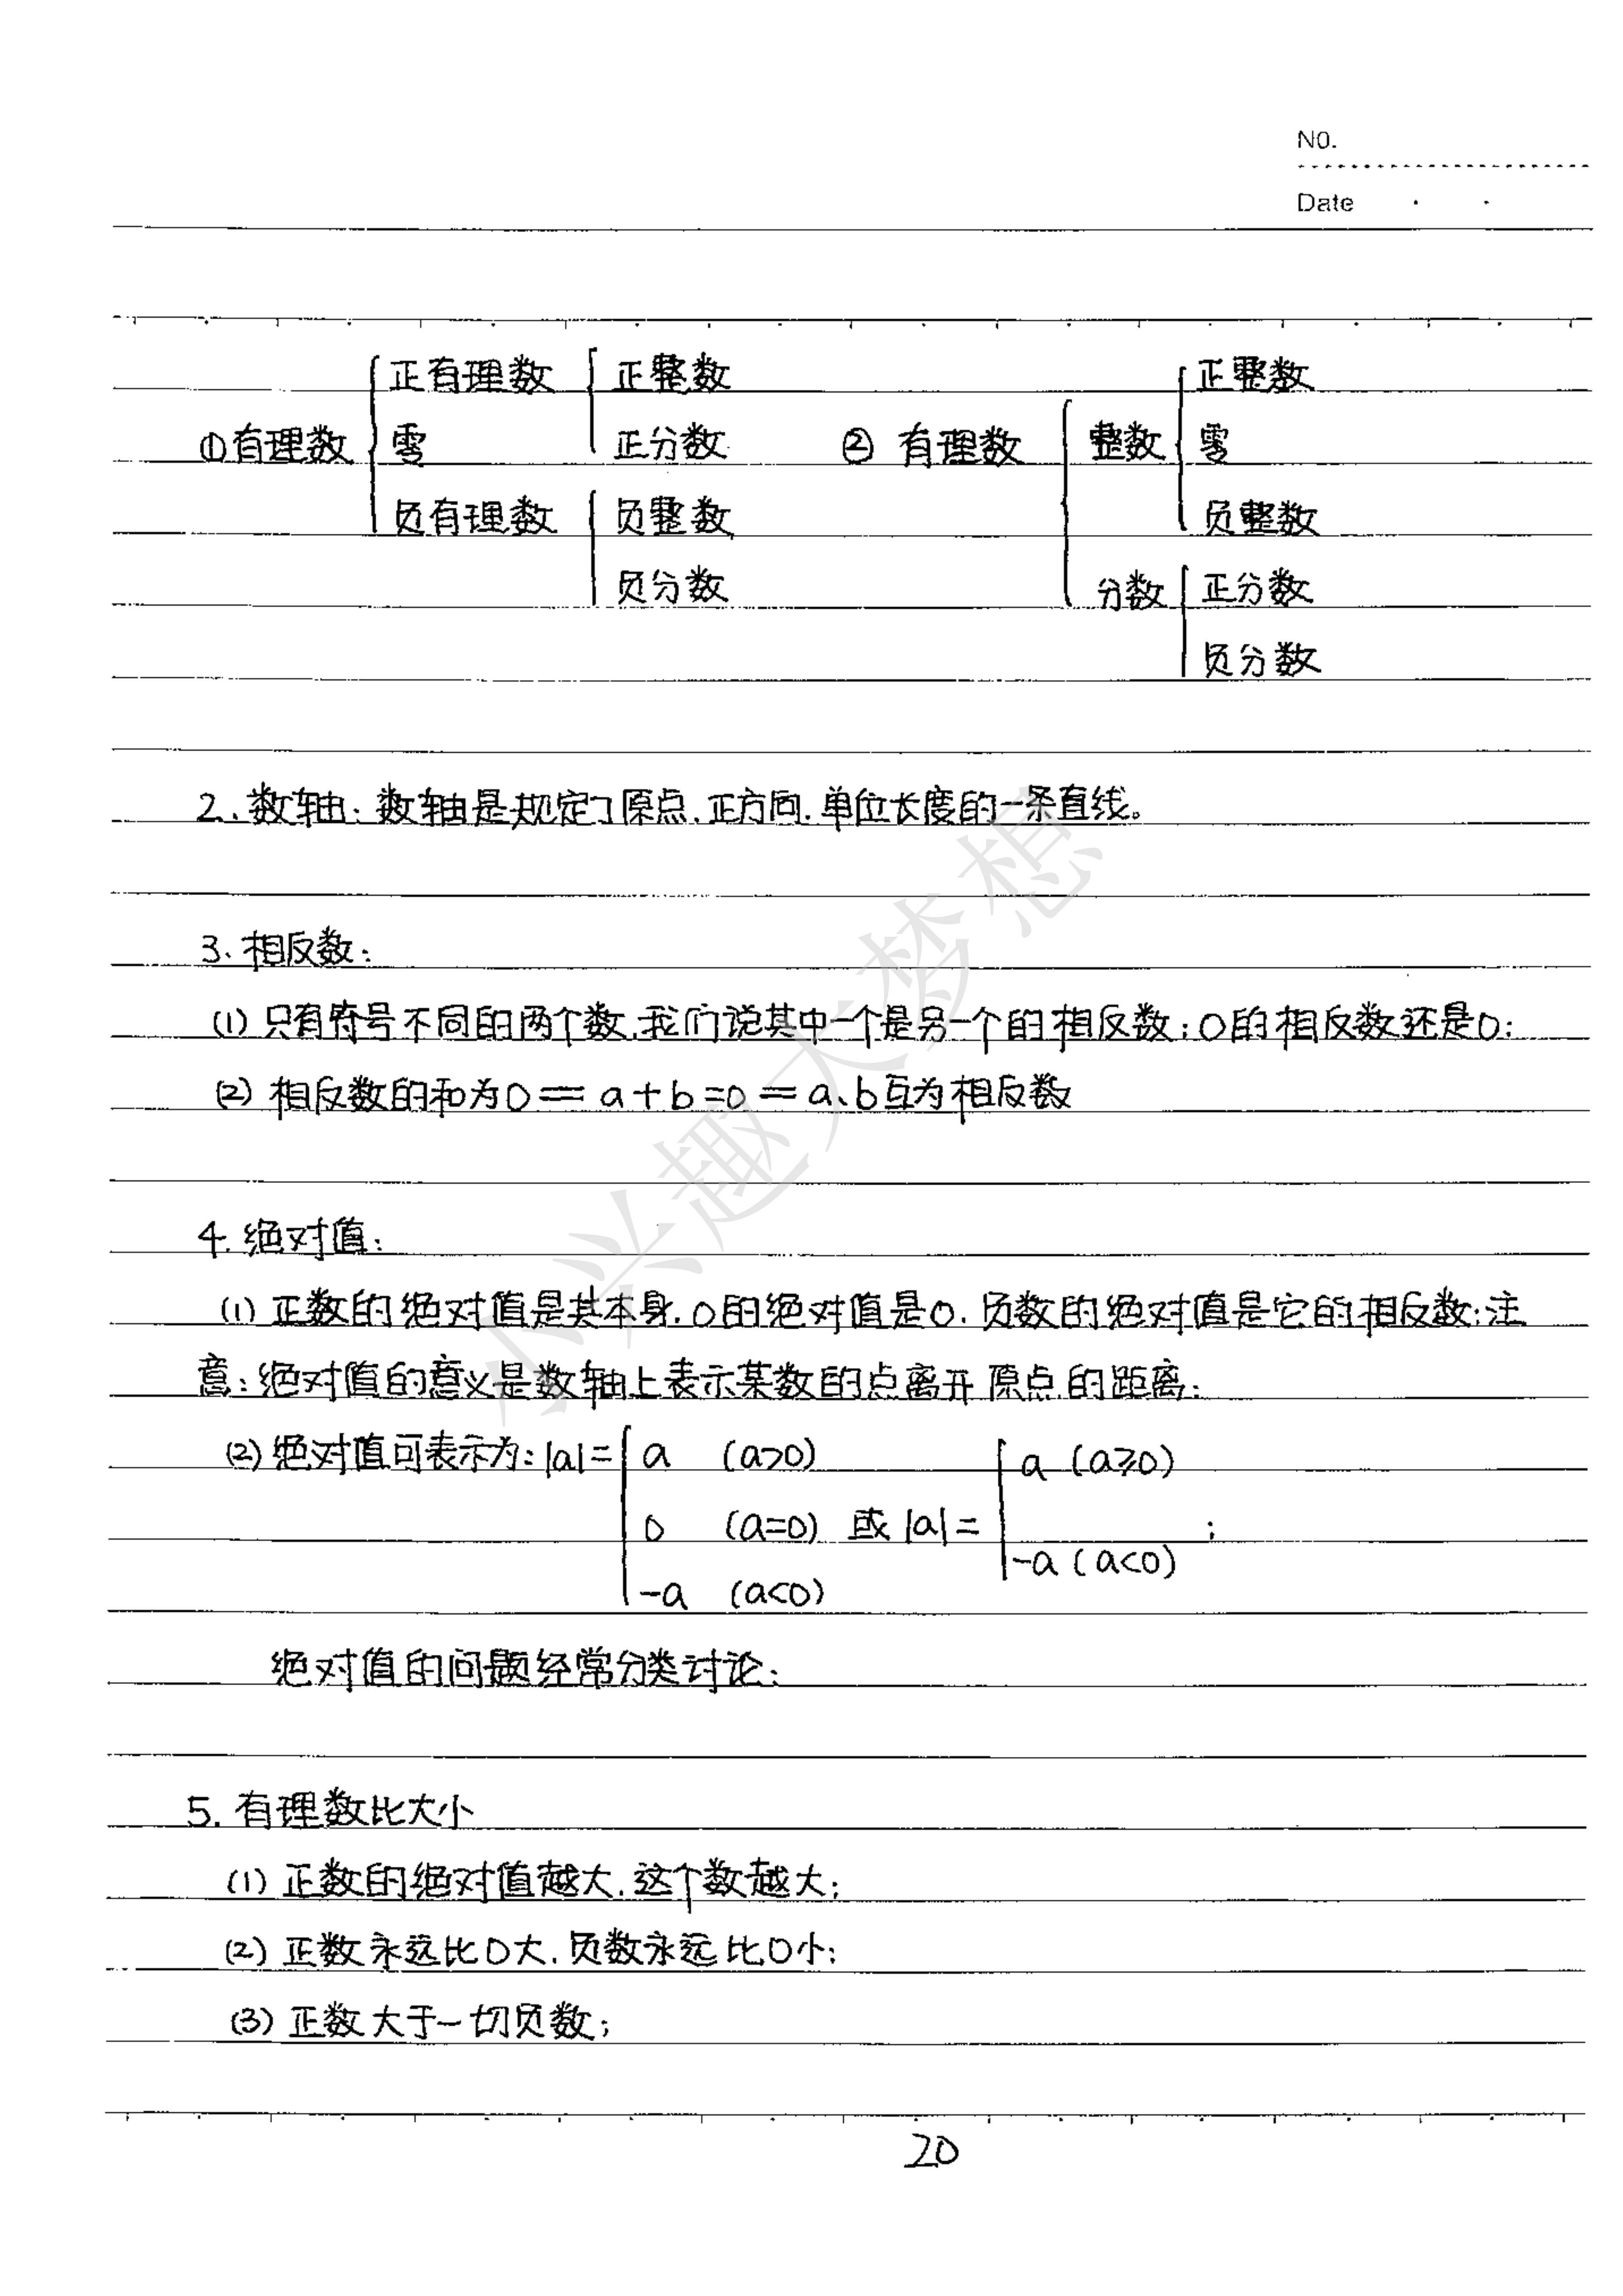 NO.
Date
①有理数 { 正有理数 { 正整数
正分数
零
负有理数 { 负整数
负分数
② 有理数 { 整数 { 正整数
零
负整数
分数 { 正分数
负分数
2、数轴：数轴是规定了原点、正方向、单位长度的一条直线。
3、相反数：
(1) 只有符号不同的两个数，我们说其中一个是另一个的相反数；0的相反数还是0；
(2) 相反数的和为0 = a+b=0 = a、b互为相反数
4. 绝对值：
(1) 正数的绝对值是其本身，0的绝对值是0，负数的绝对值是它的相反数；注
意：绝对值的意义是数轴上表示某数的点离开原点的距离；
(2) 绝对值可表示为：|a|= { a (a>0)
0 (a=0)
-a (a<0)
或 |a|= { a (a≥0)
-a (a<0) ；
绝对值的问题经常分类讨论；
5. 有理数比大小
(1) 正数的绝对值越大，这个数越大；
(2) 正数永远比0大，负数永远比0小；
(3) 正数大于一切负数；
20
小兴趣大梦想